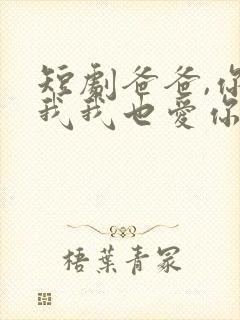 短劇爸爸,你
我我也愛你
梧葉青冢